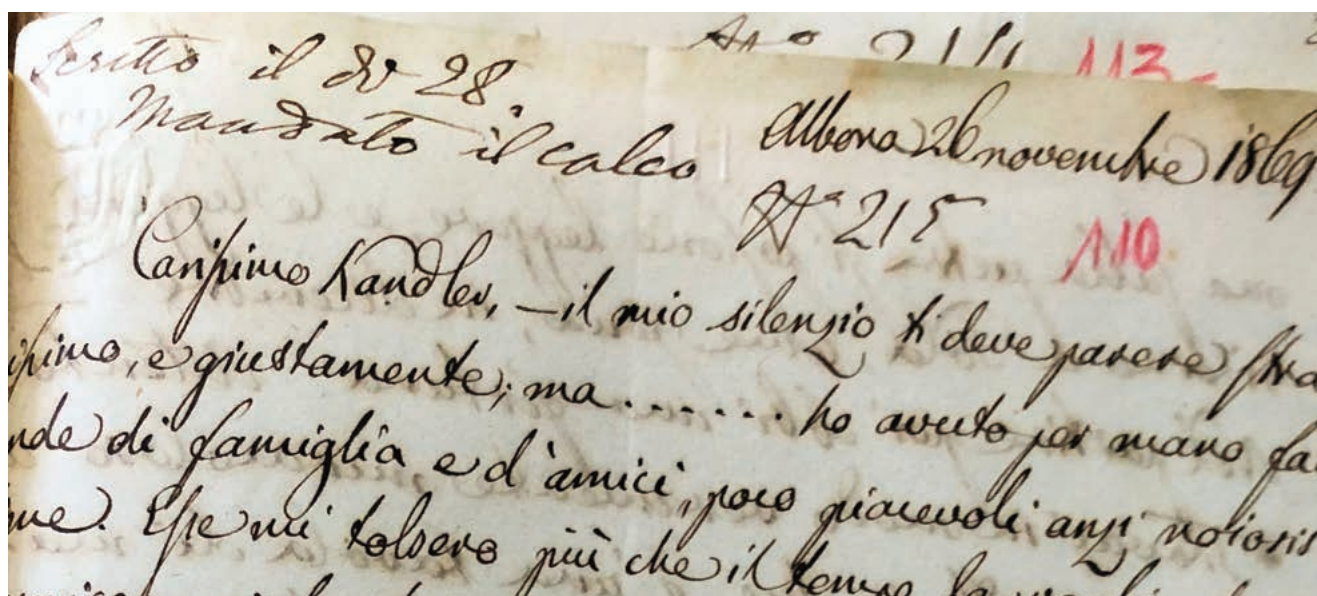 N.º 211 113
Scritto il dì 28.
Mandato il calco
Albona 26 novembre 1869
Nº 215 110
Carissimo Kandler, – il mio silenzio ti deve parere stra
issimo, e giustamente; ma....... ho avuto per mano fa
nde di famiglia e d'amici, poco piacevoli anzi noiosis
me. Esse mi tolsero più che il tempo la